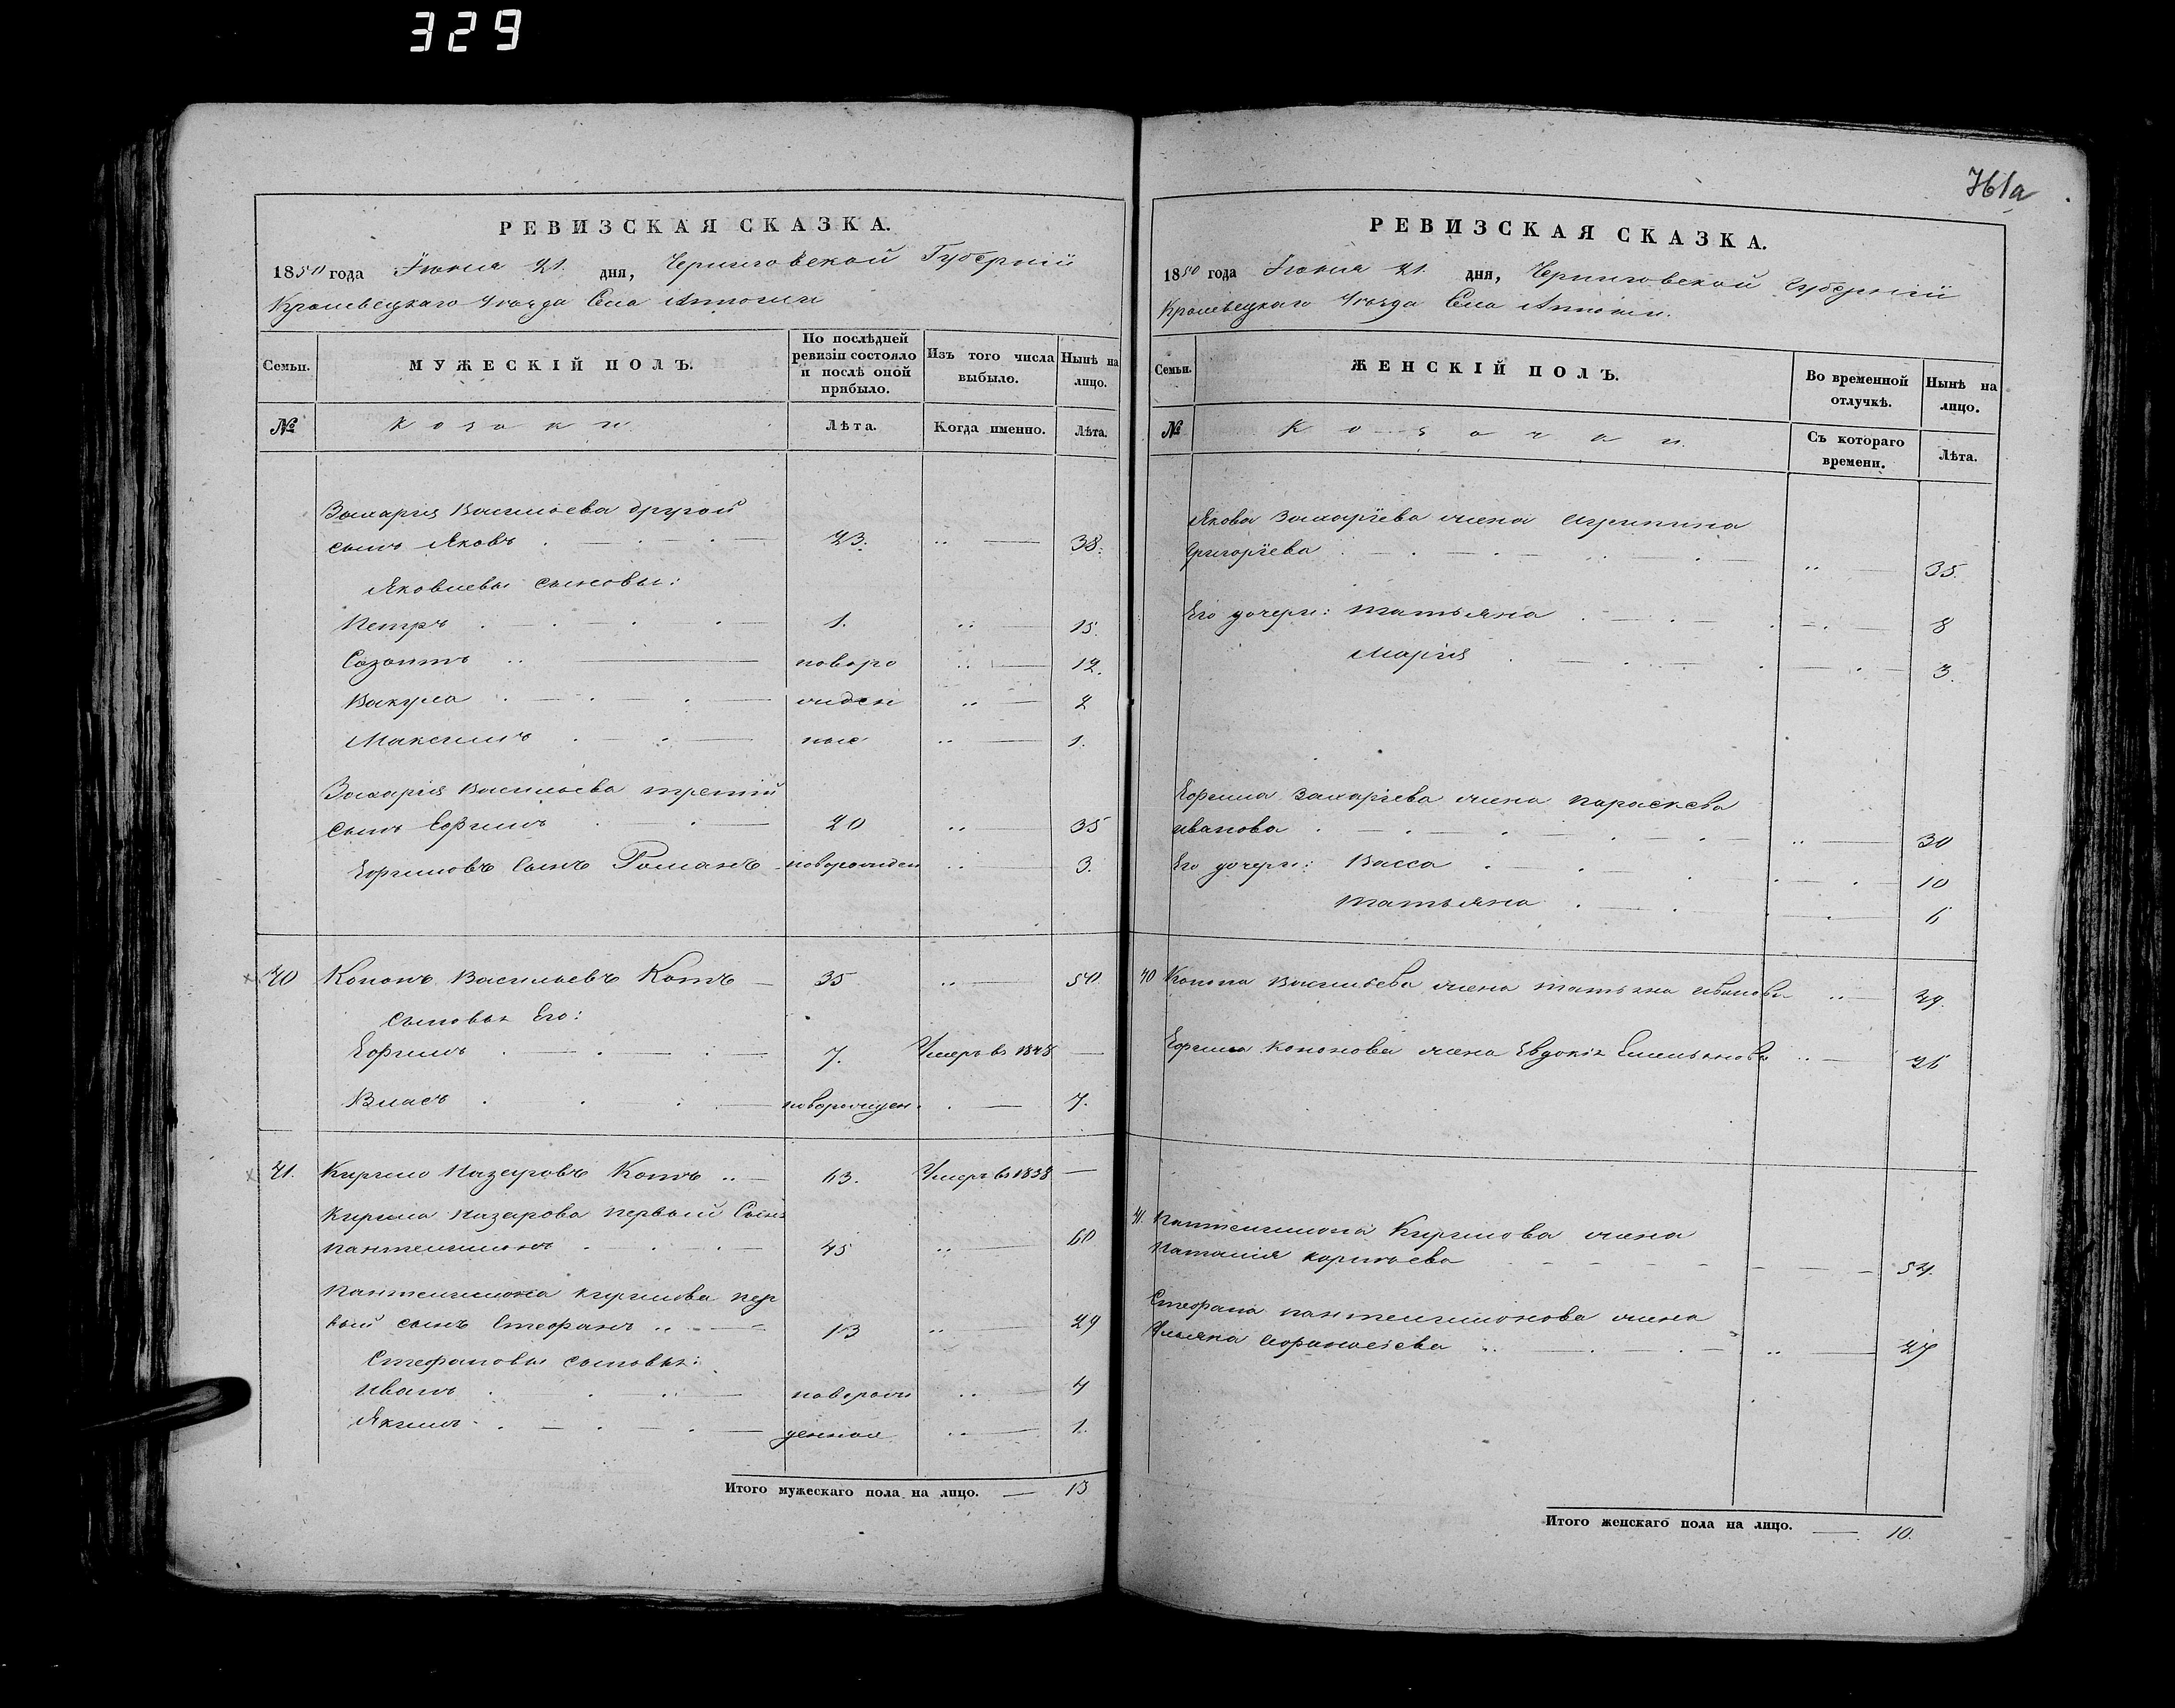 329
361а
РЕВИЗСКАЯ СКАЗКА.
1850 года Іюня 21 дня, Черниговской Губерніи
Кролевецкаго Уѣзда Села
Семьи.
МУЖЕСКІЙ ПОЛЪ.
По послѣдней ревизіи состояло и послѣ оной прибыло.
Изъ того числа выбыло.
Нынѣ на лицо.
№
Козаки
Лѣта.
Когда именно.
Лѣта.
Захарія Васильева другой
сынъ Яковъ 23. 38.
Яковлевы сыновья:
Петръ 1. 15.
Созонтъ новоро 12.
Вакула жден 2
Максимъ ные 1.
Захарія Васильева третій
сынъ Ефимъ 20 35
Ефимовъ сынъ Романъ новорожден 3.
40 Кононъ Васильевъ Котъ 35 50
сыновья Его:
Ефимъ 7. Умеръ въ 1848
Власъ новорожден. 7.
41. Кирило Назаровъ Котъ 63. Умеръ въ 1838
Кирила Назарова первый Сынъ
Пантелимонъ 45 60
Пантелимона Кирилова пер
вый сынъ Стефанъ 13 29
Стефановы сыновья:
Иванъ новорож 4
Якимъ денные 1.
Итого мужескаго пола на лицо. 13
РЕВИЗСКАЯ СКАЗКА.
1850 года Іюня 21. дня, Черниговской Губерніи
Кролевецкаго Уѣзда Села
Семьи.
ЖЕНСКІЙ ПОЛЪ.
Во временной отлучкѣ.
Нынѣ на лицо.
№
Козачки.
Съ котораго времени.
Лѣта.
Якова Захаріева жена Агрипина
Григоріева 35.
Его дочери: Татьяна 8
Марія 3.
Ефима Захаріева жена Параскева
Иванова 30
Его дочери: Васса 10
Татьяна 6
40 Конона Васильева жена Татьяна Иванова 49.
Ефима Кононова жена Евдокія Емельянова 26
41. Пантелимона Кирилова жена
Наталія 54.
Стефана Пантелимонова жена
Ульяна Афанасіева 27
Итого женскаго пола на лицо. 10.